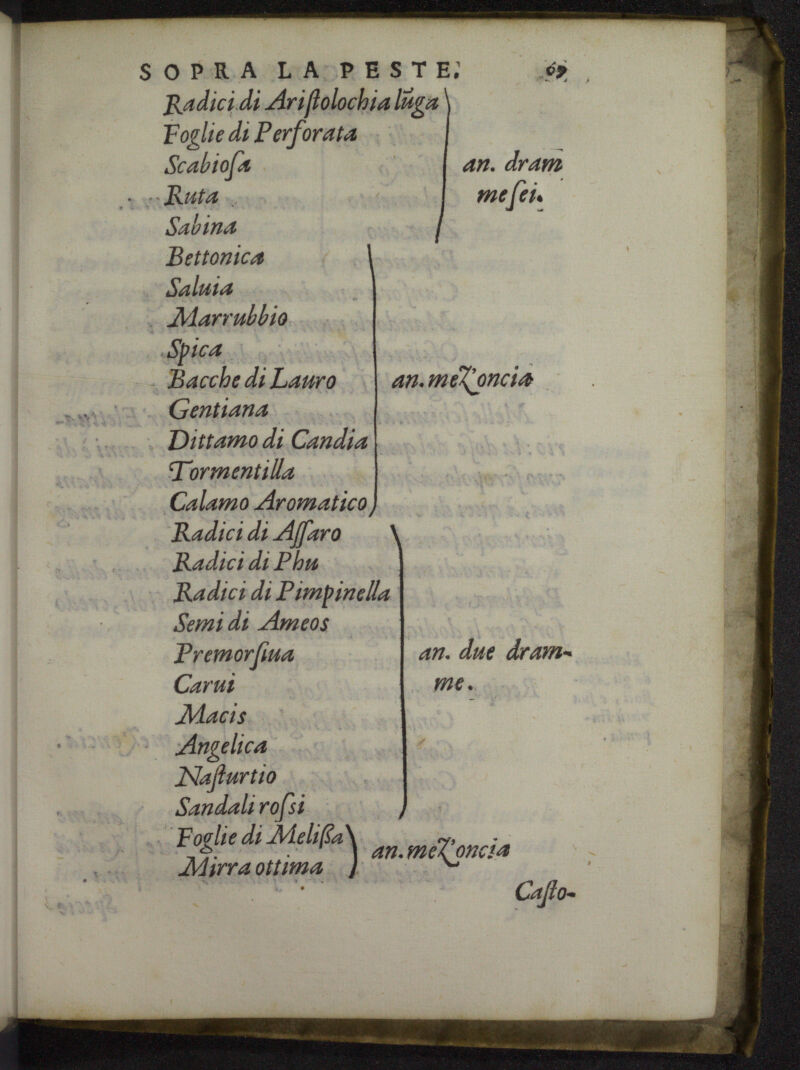 SOPRA LA PESTE. 69
Radici di Ariſtolochia lũga
Foglie di Perforata
Scabioſa
an. dram
Ruta
me ſei.
Sabina
Bettonica
Saluia
Marrubbio
Spica
Bacche di Lauro
an. mez'oncia
Gentiana
Dittamo di Candia
Tormentilla
Calamo Aromatico
Radici di Aſſaro
Radici di Phu
Radici di Pimpinella
Semi di Ameos
Premorſiua
an. due dram-
Carui
me.
Macis
Angelica
Naſturtio
Sandali roſsi
Foglie di Melißa
an. mez'oncia
Mirra ottima
Caſto-